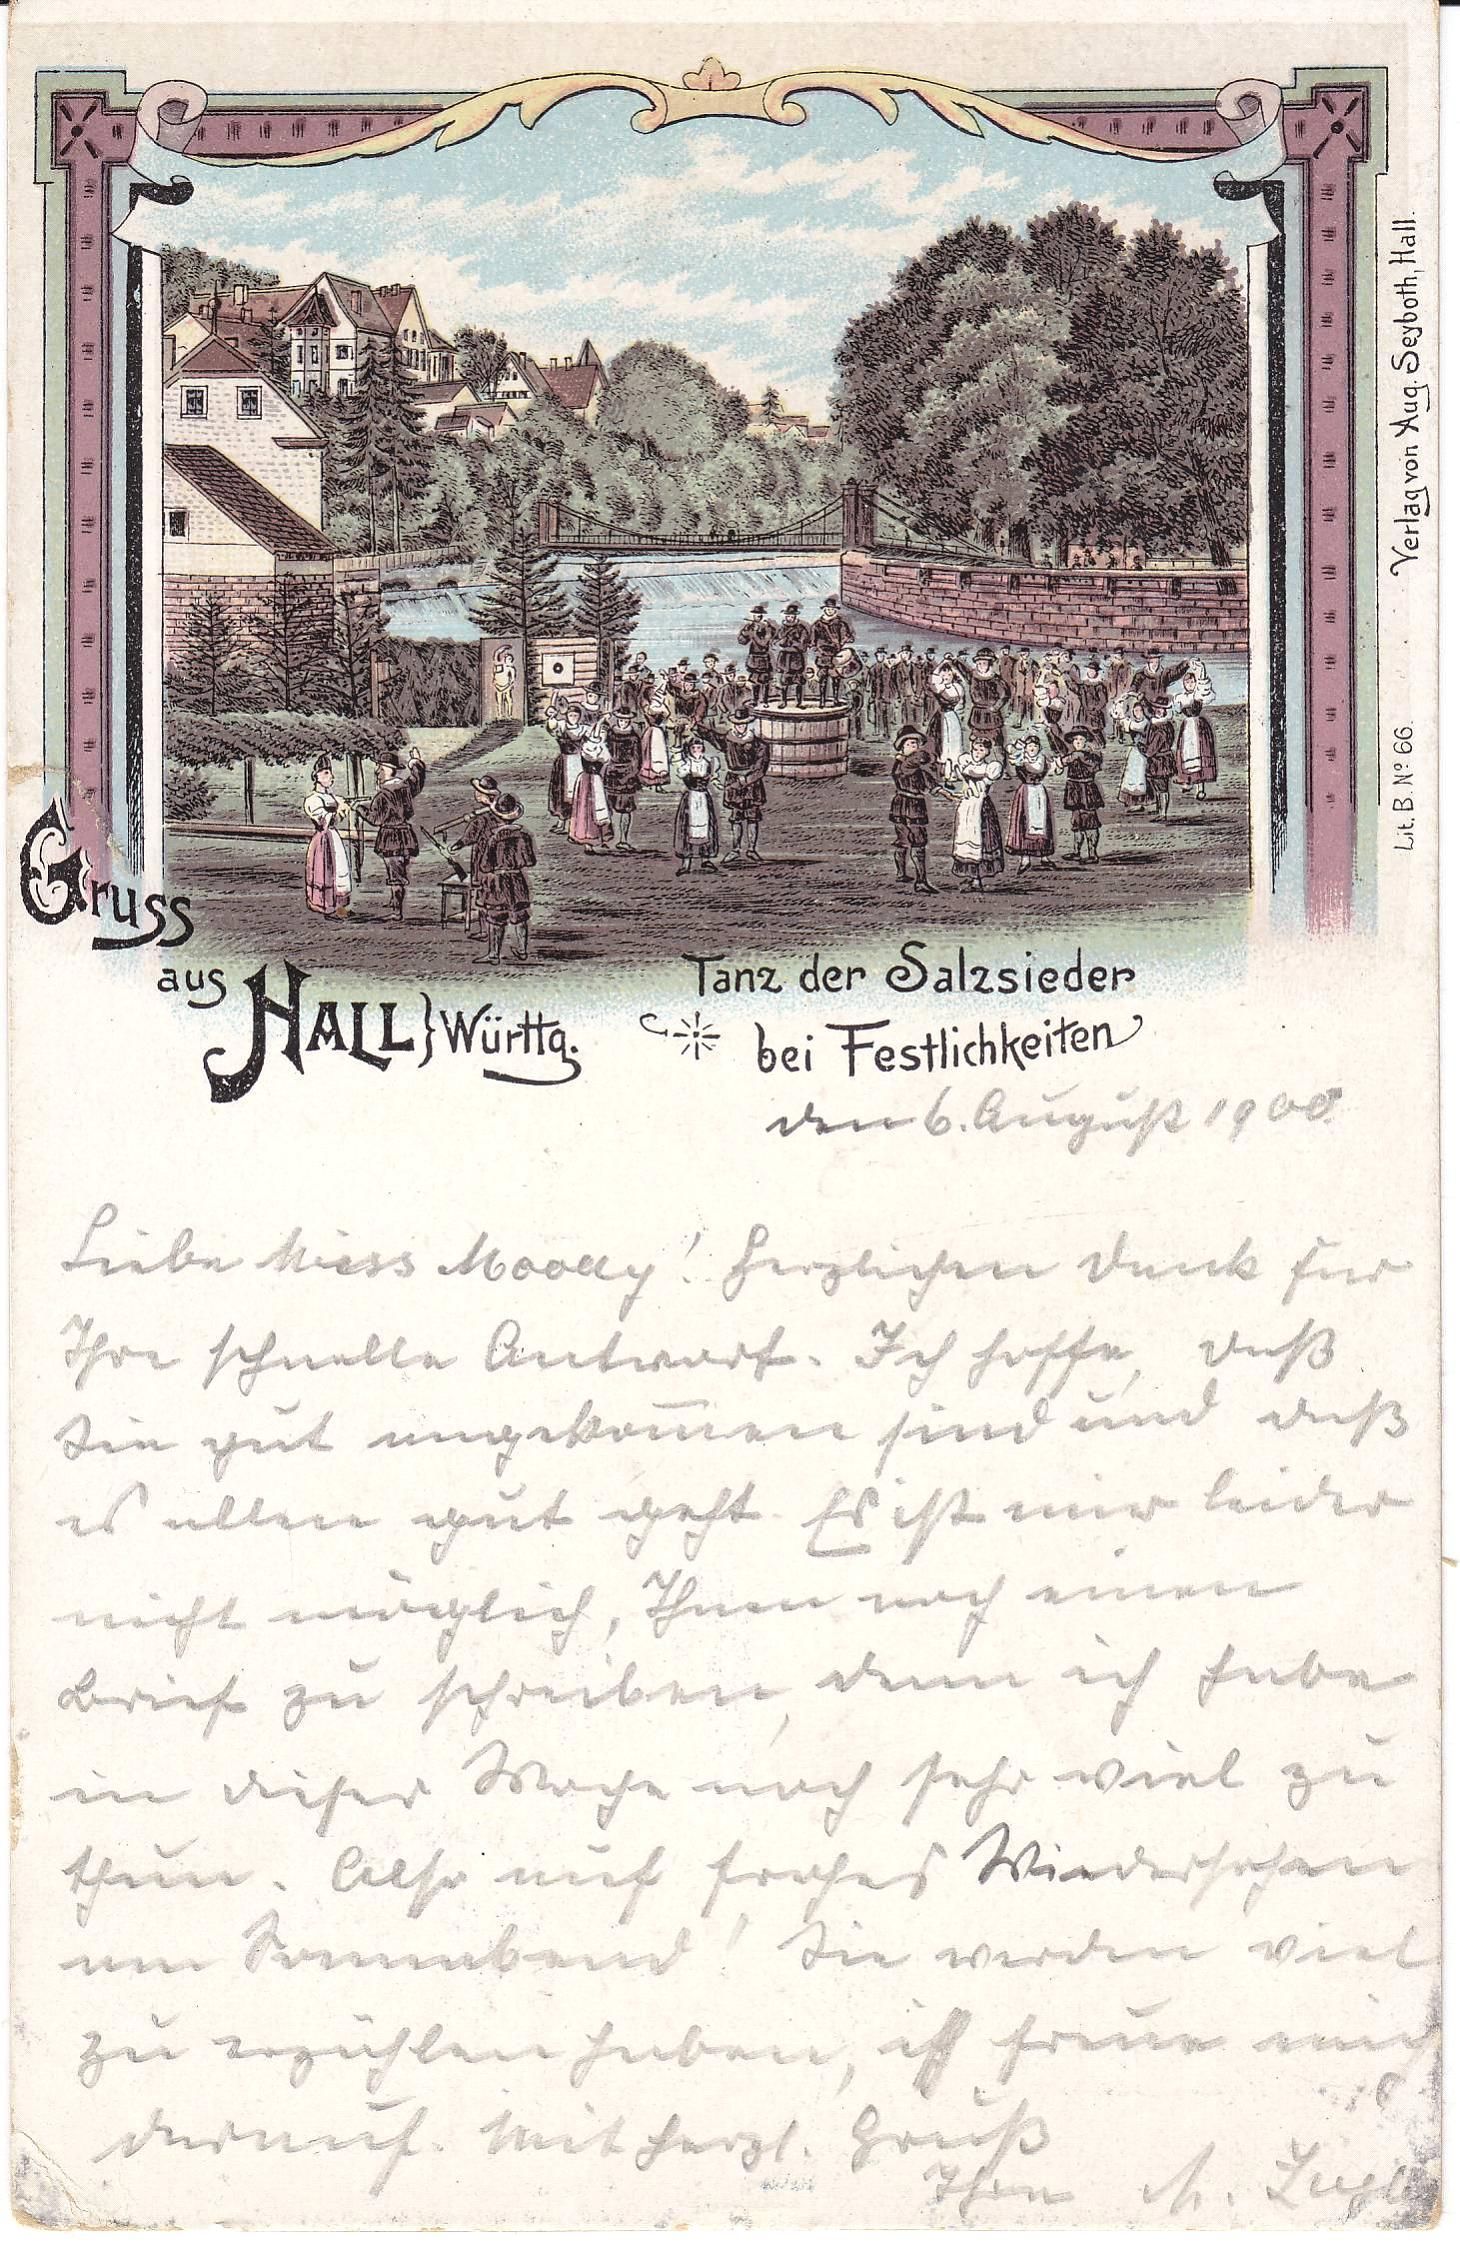 Gruss
aus HALL Württg.
Tanz der Salzsieder
bei Festlichkeiten
Verlag von Aug. Seyboth, Hall.
Lit. B. No 66.
den 6. August 1900.
Liebe Miss Moody! Herzlichen Dank für
Ihre schnelle Antwort. Ich hoffe, daß
Sie gut angekom̅en sind und daß
es allen gut geht. Es ist mir leider
nicht möglich, Ihnen noch einen
Brief zu schreiben, denn ich habe
in dieser Woche noch sehr viel zu
thun. Also auf frohes Wiedersehen
am Sonnabend! Sie werden viel
zu erzählen haben, ich freue mich
darauf. Mit herzl. Gruß
Ihre